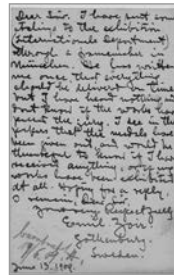 Dear Sir. I have sent some
etchings to the exhibition
(international department)
through a forwarder in
München. He has written
me once that everything
should be delivered in time
but I have heard nothing
the works have
passed the jury. I see in the
papers that the medals have
been given out, and would be
thankful to know if I have
received anything, or if my
works have been exhibited
at all. Hoping for a reply.
I remain, Dear Sir,
Yours very Respectfully
Gothenburg.
Sweden.
June 13. 1909.